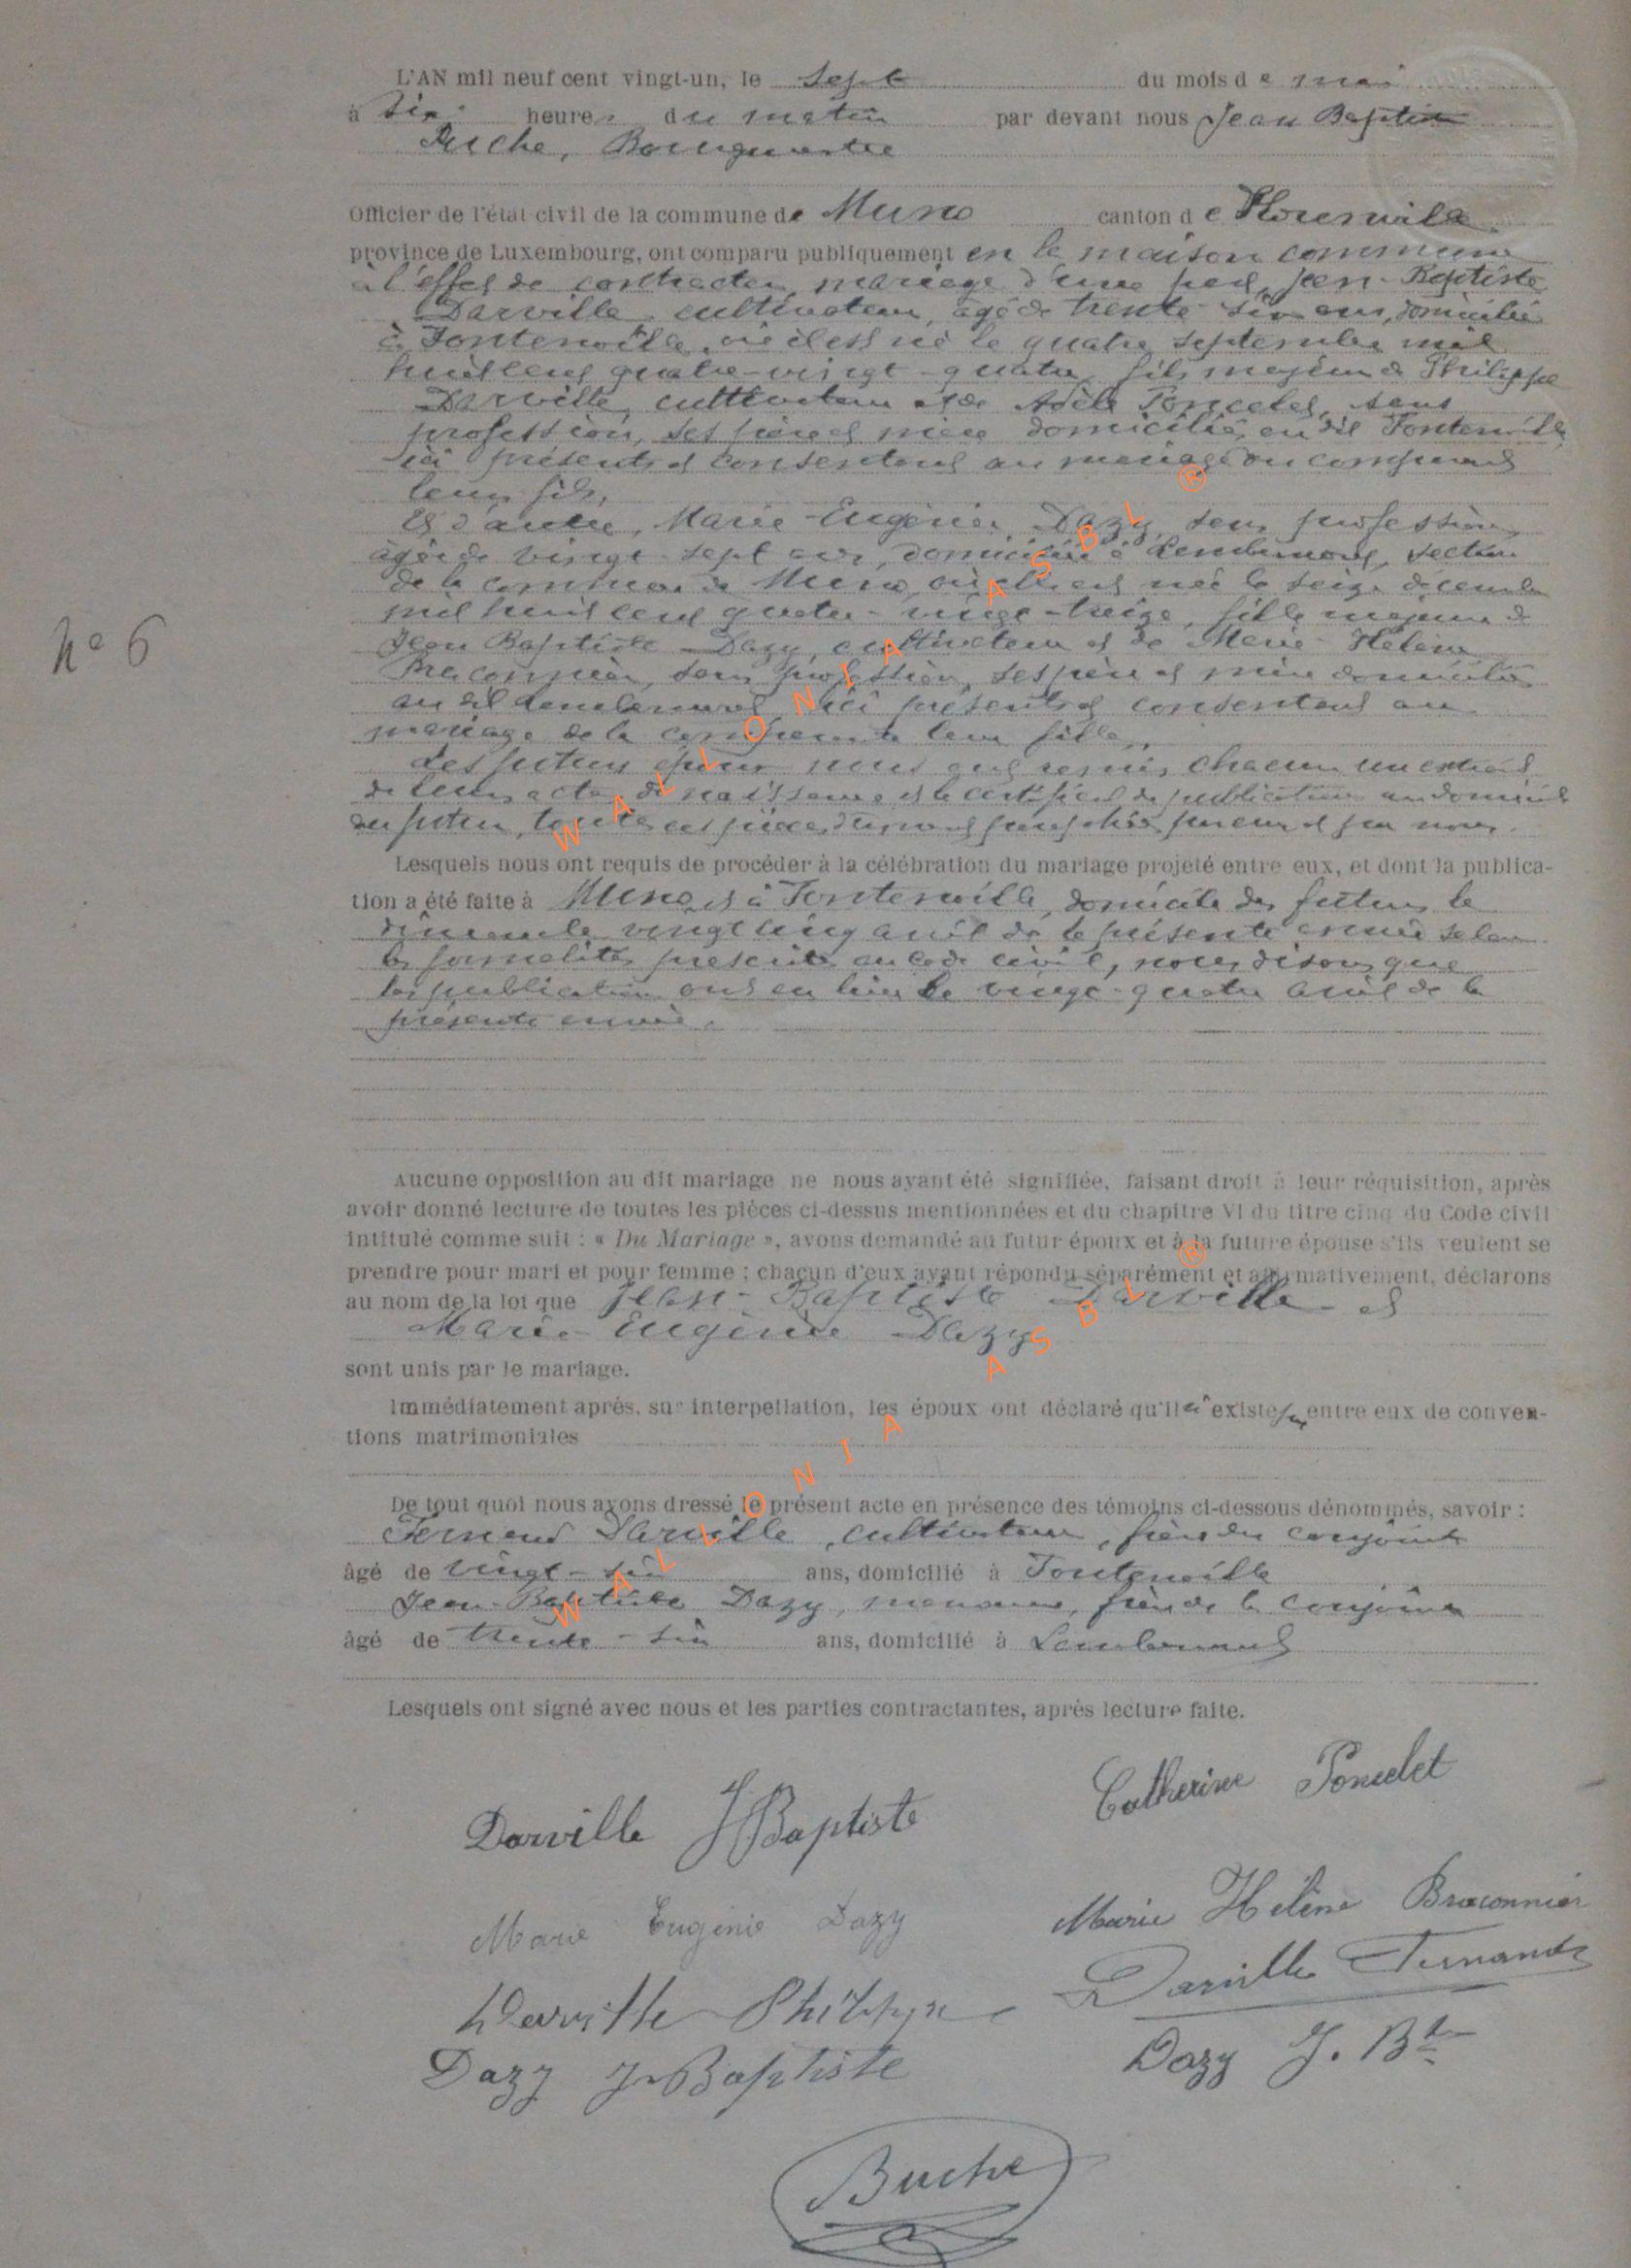 L'AN mil neuf cent vingt-un, le sept du mois de mai
à six heures du matin par devant nous Jean Baptiste
Buche, Bourgmestre
Officier de l'état civil de la commune de Muno canton de Florenville
province de Luxembourg, ont comparu publiquement en la maison commune
à l'effet de contracter mariage d'une part, Jean-Baptiste
Darville cultivateur, âgé de trente-six ans, domicilié
à Fontenoille, où il est né le quatre septembre mil
huit cent quatre-vingt-quatre, fils majeur de Philippe
Darville, cultivateur et de Adèle Poncelet, sans
profession, ses père et mère domiciliés au dit Fontenoille
ici présents et consentant au mariage du comparant
leur fils,
Et d'autre, Marie-Eugénie Dazy, sans profession,
âgée de vingt-sept ans, domiciliée à Lambermont, section
de la commune de Muno, où elle est née le seize décembre
mil huit cent quatre-vingt-treize, fille majeure de
Jean Baptiste Dazy, cultivateur et de Marie-Hélène
Braconnier, sans profession, ses père et mère domiciliés
au dit Lambermont, ici présents et consentant au
mariage de la comparante leur fille,
Les futurs époux nous ont remis chacun un extrait
de leurs actes de naissance et le certificat de publication au domicile
du futur, toutes ces pièces par eux et par nous.
Lesquels nous ont requis de procéder à la célébration du mariage projeté entre eux, et dont la publica-
tion a été faite à Muno et à Fontenoille, domicile des futurs le
dimanche vingt cinq avril de la présente année selon
les formalités prescrites au code civil, nous disons que
les publications ont eu lieu le vingt-quatre avril de la
présente année.
N° 6
Aucune opposition au dit mariage ne nous ayant été signifiée, faisant droit à leur réquisition, après
avoir donné lecture de toutes les pièces ci-dessus mentionnées et du chapitre VI du titre cinq du Code civil
intitulé comme suit : « Du Mariage », avons demandé au futur époux et à la future épouse s'ils veulent se
prendre pour mari et pour femme ; chacun d'eux ayant répondu séparément et affirmativement, déclarons
au nom de la loi que Jean-Baptiste Darville et
Marie-Eugénie Dazy
sont unis par le mariage.
Immédiatement après, sur interpellation, les époux ont déclaré qu'il n'existe pas entre eux de conven-
tions matrimoniales
De tout quoi nous avons dressé le présent acte en présence des témoins ci-dessous dénommés, savoir :
Fernand Darville, cultivateur, frère du conjoint
âgé de vingt-six ans, domicilié à Fontenoille
Jean-Baptiste Dazy, menuisier, frère de la conjointe
âgé de trente-six ans, domicilié à Lambermont
Lesquels ont signé avec nous et les parties contractantes, après lecture faite.
Darville J Baptiste
Catherine Poncelet
Marie Eugénie Dazy
Marie Hélène Braconnier
Darville Philippe
Darville Fernand
Dazy J-Baptiste
Dazy J. Bte
Buche
WALLONIA ASBL ®
WALLONIA ASBL ®